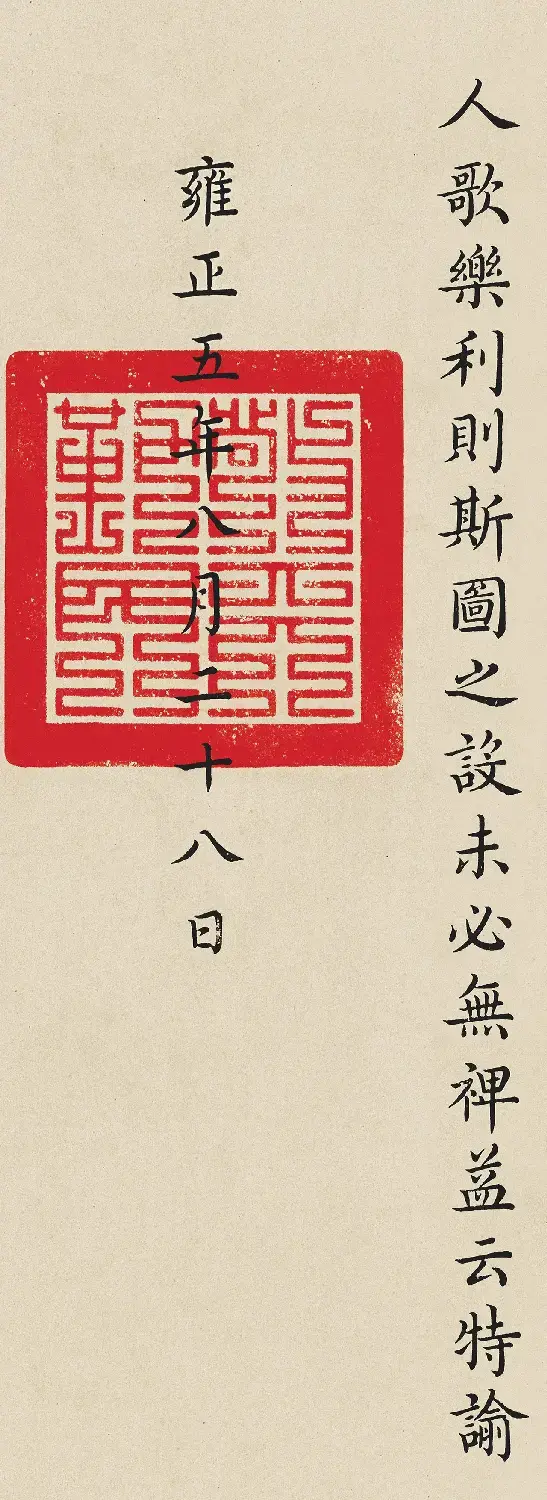 人歌樂利則斯圖之設未必無裨益云特諭
雍正五年八月二十八日